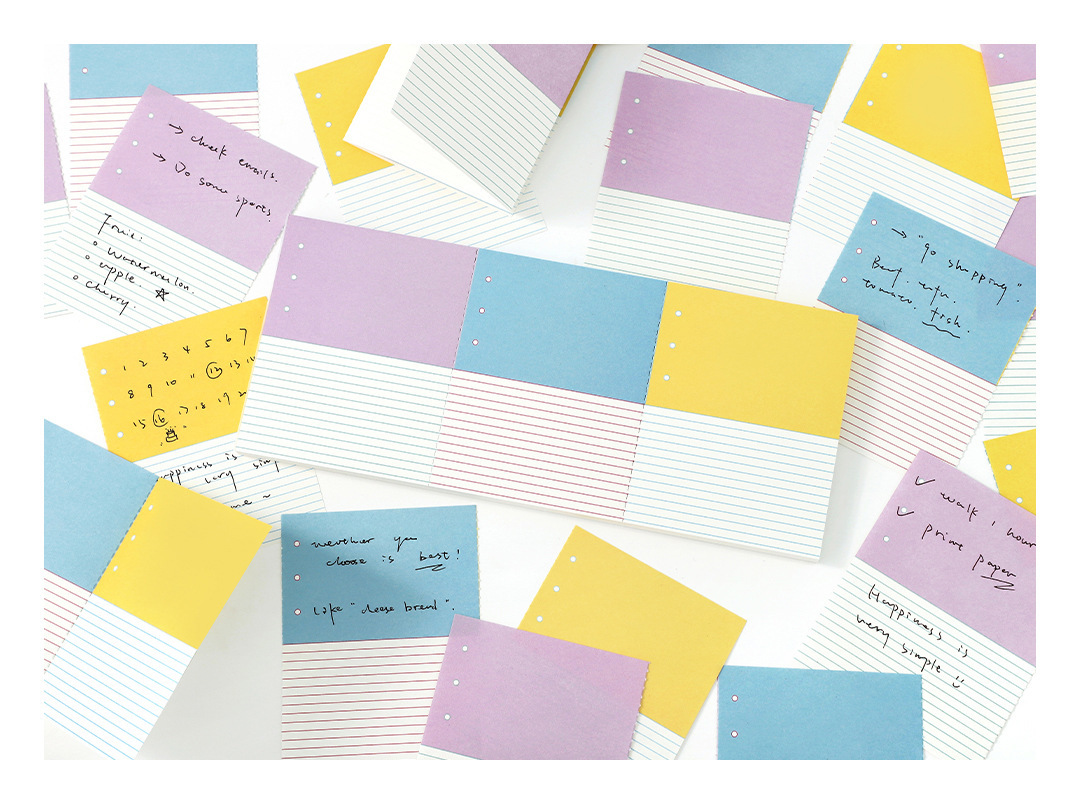 → check emails.
→ Do some sports.
Fruit:
• watermelon.
• apple. ☆
• cherry.
1 2 3 4 5 6 7
8 9 10 11 12 13 14
15 16 17 18 19 20
Happiness is
very simp
me ~
→ "go shopping".
Beef.
tomato. fish.
weather you
choose is best!
Like "cheese bread".
✓ walk 1 hour
✓ prime paper
Happiness is
very simple